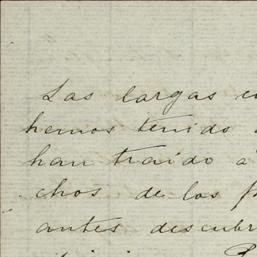 Las largas
hemos tenido
han traido a
chos de los
antes descubr